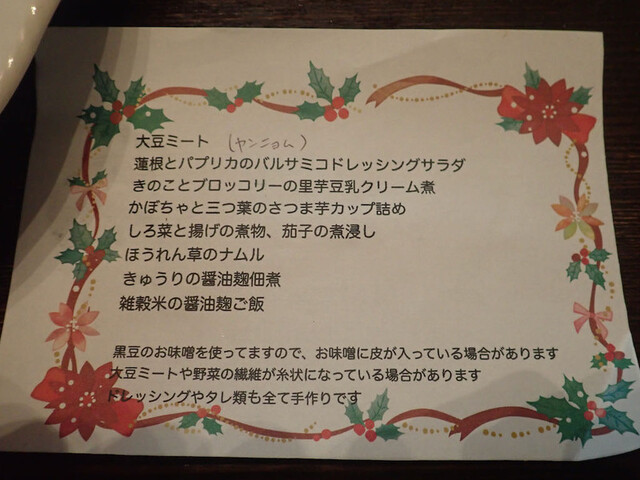 大豆ミート (ヤンニョム)
蓮根とパプリカのバルサミコドレッシングサラダ
きのことブロッコリーの里芋豆乳クリーム煮
かぼちゃと三つ葉のさつま芋カップ詰め
しろ菜と揚げの煮物、茄子の煮浸し
ほうれん草のナムル
きゅうりの醤油麹佃煮
雑穀米の醤油麹ご飯
黒豆のお味噌を使ってますので、お味噌に皮が入っている場合があります
大豆ミートや野菜の繊維が糸状になっている場合があります
ドレッシングやタレ類も全て手作りです